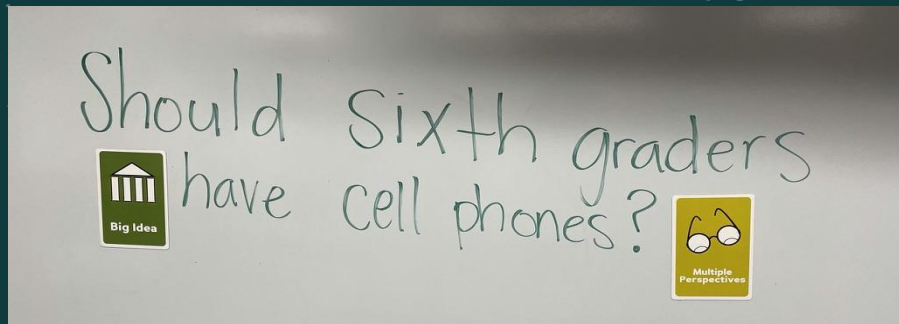 Should Sixth graders
have cell phones?
Big Idea
Multiple
Perspectives